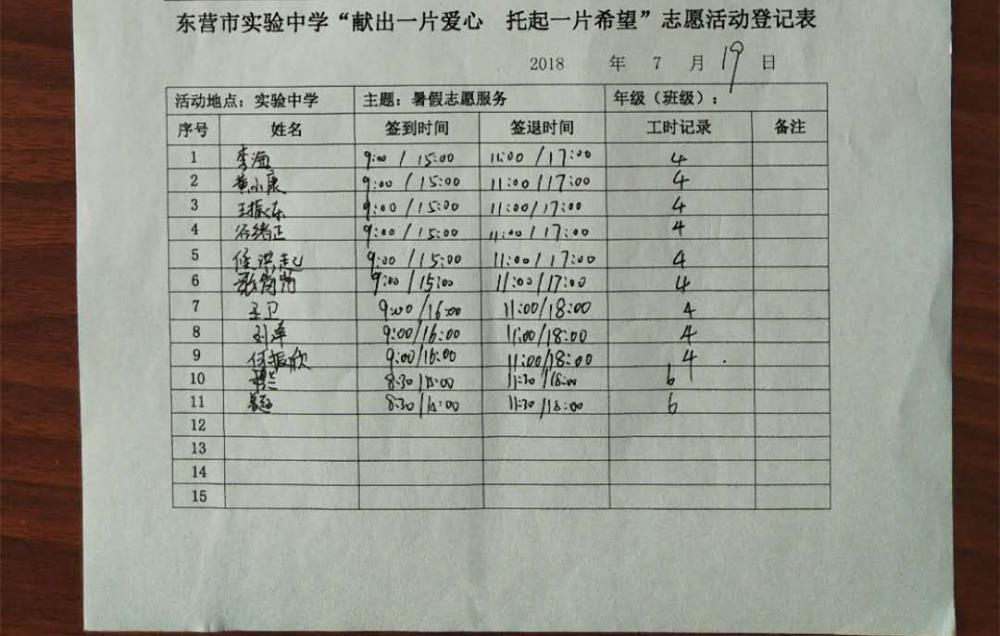 东营市实验中学“献出一片爱心 托起一片希望”志愿活动登记表
2018 年 7 月 19 日
活动地点：实验中学 主题：暑假志愿服务 年级（班级）：
序号 姓名 签到时间 签退时间 工时记录 备注
1 李海 9:00/15:00 11:00/17:00 4
2 黄小康 9:00/15:00 11:00/17:00 4
3 王振东 9:00/15:00 11:00/17:00 4
4 谷绪正 9:00/15:00 11:00/17:00 4
5 侯洪起 9:00/15:00 11:00/17:00 4
6 9:00/15:00 11:00/17:00 4
7 王卫 9:00/16:00 11:00/18:00 4
8 刘萍 9:00/16:00 11:00/18:00 4
9 何振欣 9:00/16:00 11:00/18:00 4
10 8:30/15:00 11:30/18:00 6
11 8:30/15:00 11:30/18:00 6
12
13
14
15